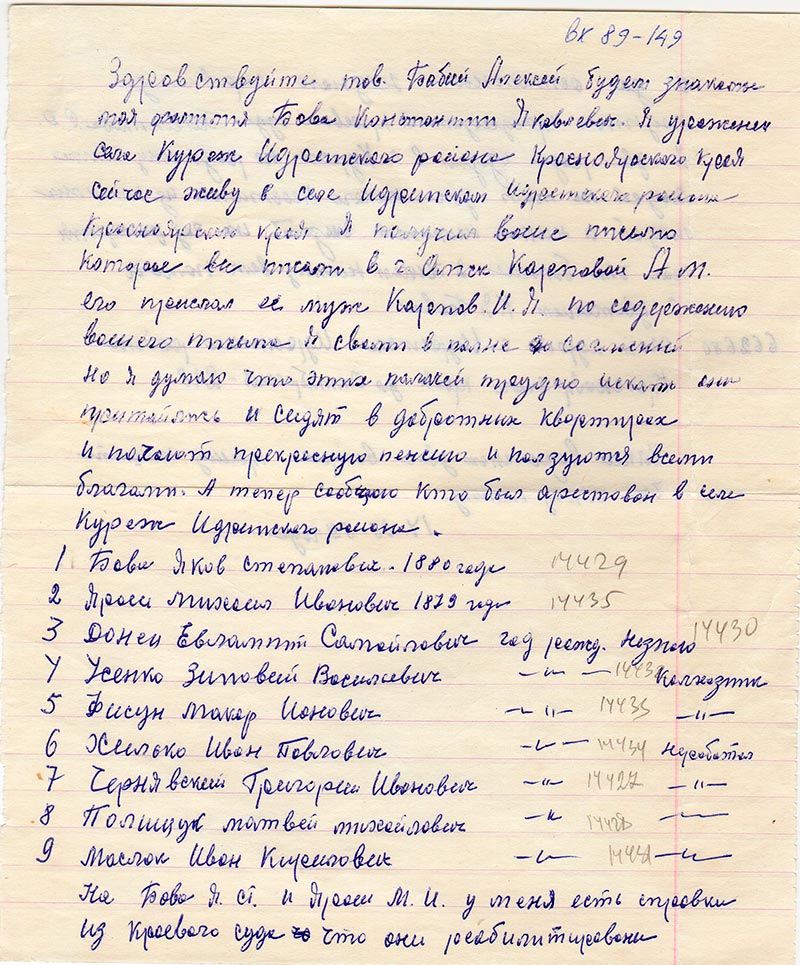 вх 89-149
Здравствуйте тов. Бабий Алексей будем знакомы
моя фамилия Бова Константин Яковлевич. Я уроженец
села Курэж Идринского района Красноярского края
сейчас живу в селе Идринском Идринского района
Красноярского края Я получил ваше письмо
которое вы писали в г. Омск Карповой А М.
его прислал её муж Карпов. И. Я. по содержанию
вашего письма Я с вами в полне согласный
но я думаю что этих палачей трудно искать они
притаились и сидят в добротных квартирах
и получают прекрасную пенсию и ползуются всеми
благами. А тепер сообщаю кто был арестован в селе
Курэж Идринского района.
1 Бова Яков степанович - 1880 года 14429
2 Ярош михаил Иванович 1879 года 14435
3 Донец Евлампий Самойлович год рожд. незнаю 14430
4 Усенко Зиновей Васильевич -"- колхозник
5 Фисун Макар Ионович -"- 14433 -"-
6 Хилько Иван Павлович -"- 14434 неработал
7 Чернявский Григории Иванович -"- 14427 -"-
8 Полищук матвей михайлович -"- 14428 -"-
9 Маслак Иван Кирилович -"- 14431 -"-
На Бова Я. Ст. и Ярош М. И. у меня есть справки
из Краевого суда что они реабилитировани